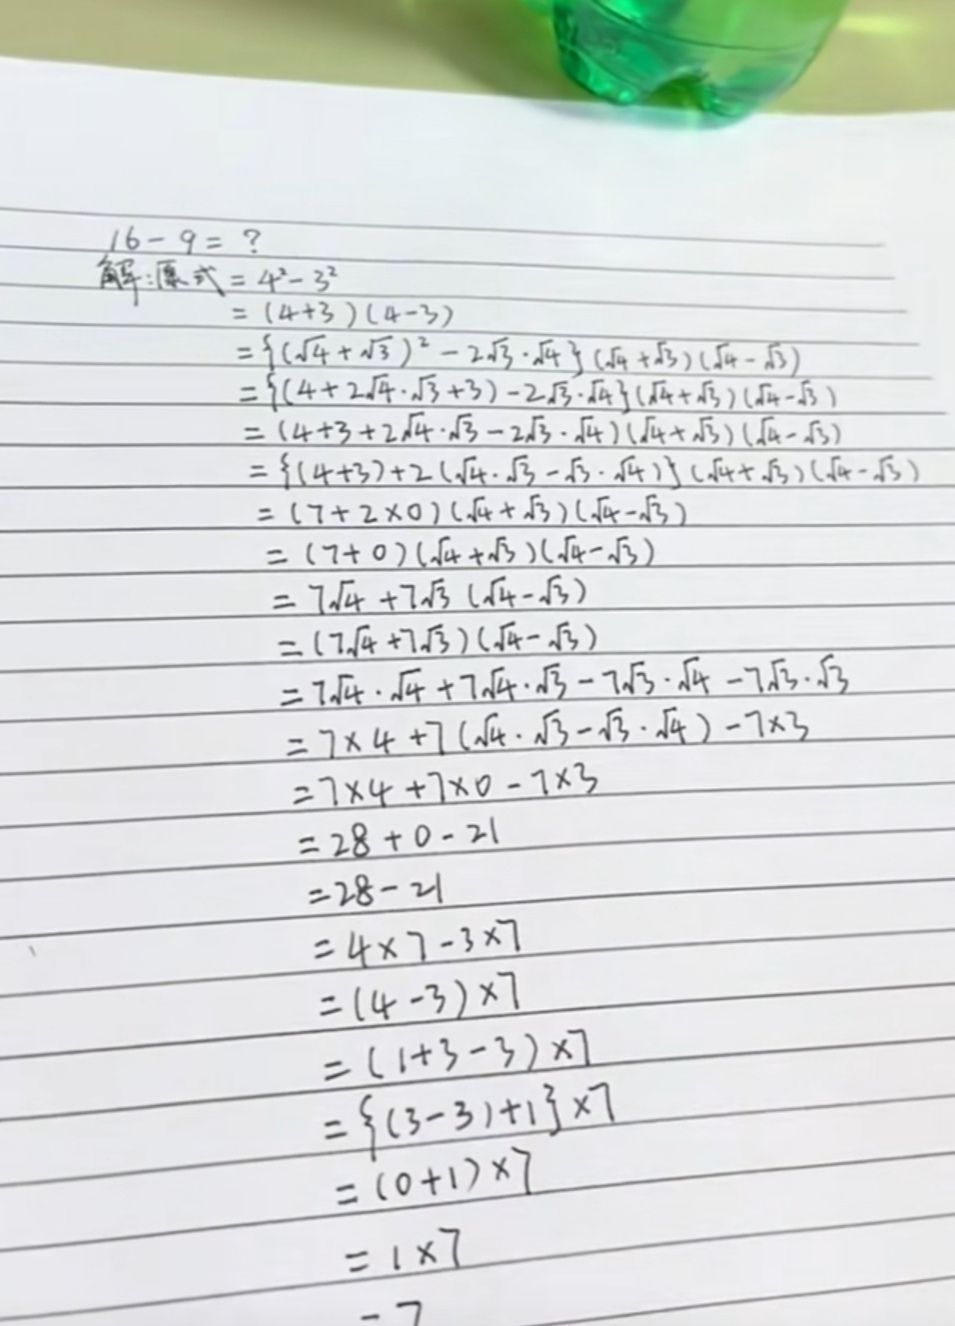 16-9=?
解:原式=4²-3²
=(4+3)(4-3)
={(√4+√3)²-2√3·√4}(√4+√3)(√4-√3)
={(4+2√4·√3+3)-2√3·√4}(√4+√3)(√4-√3)
=(4+3+2√4·√3-2√3·√4)(√4+√3)(√4-√3)
={(4+3)+2(√4·√3-√3·√4)}(√4+√3)(√4-√3)
=(7+2×0)(√4+√3)(√4-√3)
=(7+0)(√4+√3)(√4-√3)
=7√4+7√3(√4-√3)
=(7√4+7√3)(√4-√3)
=7√4·√4+7√4·√3-7√3·√4-7√3·√3
=7×4+7(√4·√3-√3·√4)-7×3
=7×4+7×0-7×3
=28+0-21
=28-21
=4×7-3×7
=(4-3)×7
=(1+3-3)×7
={(3-3)+1}×7
=(0+1)×7
=1×7
=7